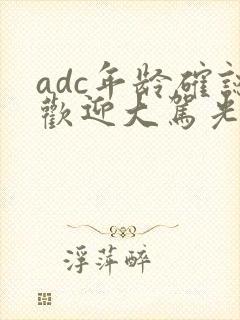 adc年龄確認
歡迎大駕光
浮萍醉